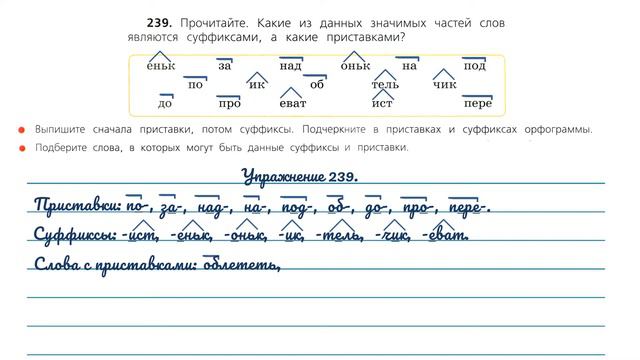 239. Прочитайте. Какие из данных значимых частей слов
являются суффиксами, а какие приставками?
еньк за над оньк на под
по ик об тель чик
до про еват ист пере
Выпишите сначала приставки, потом суффиксы. Подчеркните в приставках и суффиксах орфограммы.
Подберите слова, в которых могут быть данные суффиксы и приставки.
Упражнение 239.
Приставки: по-, за-, над-, на-, под-, об-, до-, про-, пере-.
Суффиксы: -ист, -еньк, -оньк, -ик, -тель, -чик, -еват.
Слова с приставками: облететь,